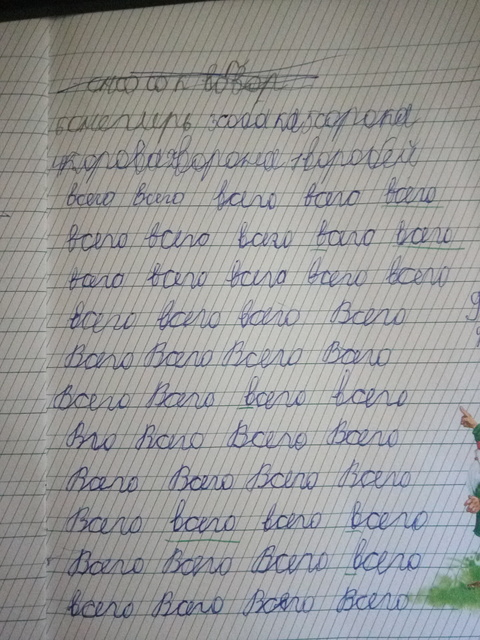 сорока
корова ворона воробей
всего всего всего всего всего
всего всего всего всего всего
всего всего всего всего всего
всего всего всего Всего
Всего Всего Всего Всего
Всего Всего всего всего
Вго Всего Всего Всего
Всего Всего Всего Всего
Всего всего всего всего
Всего Всего Всего всего
всего Всего Всего Всего